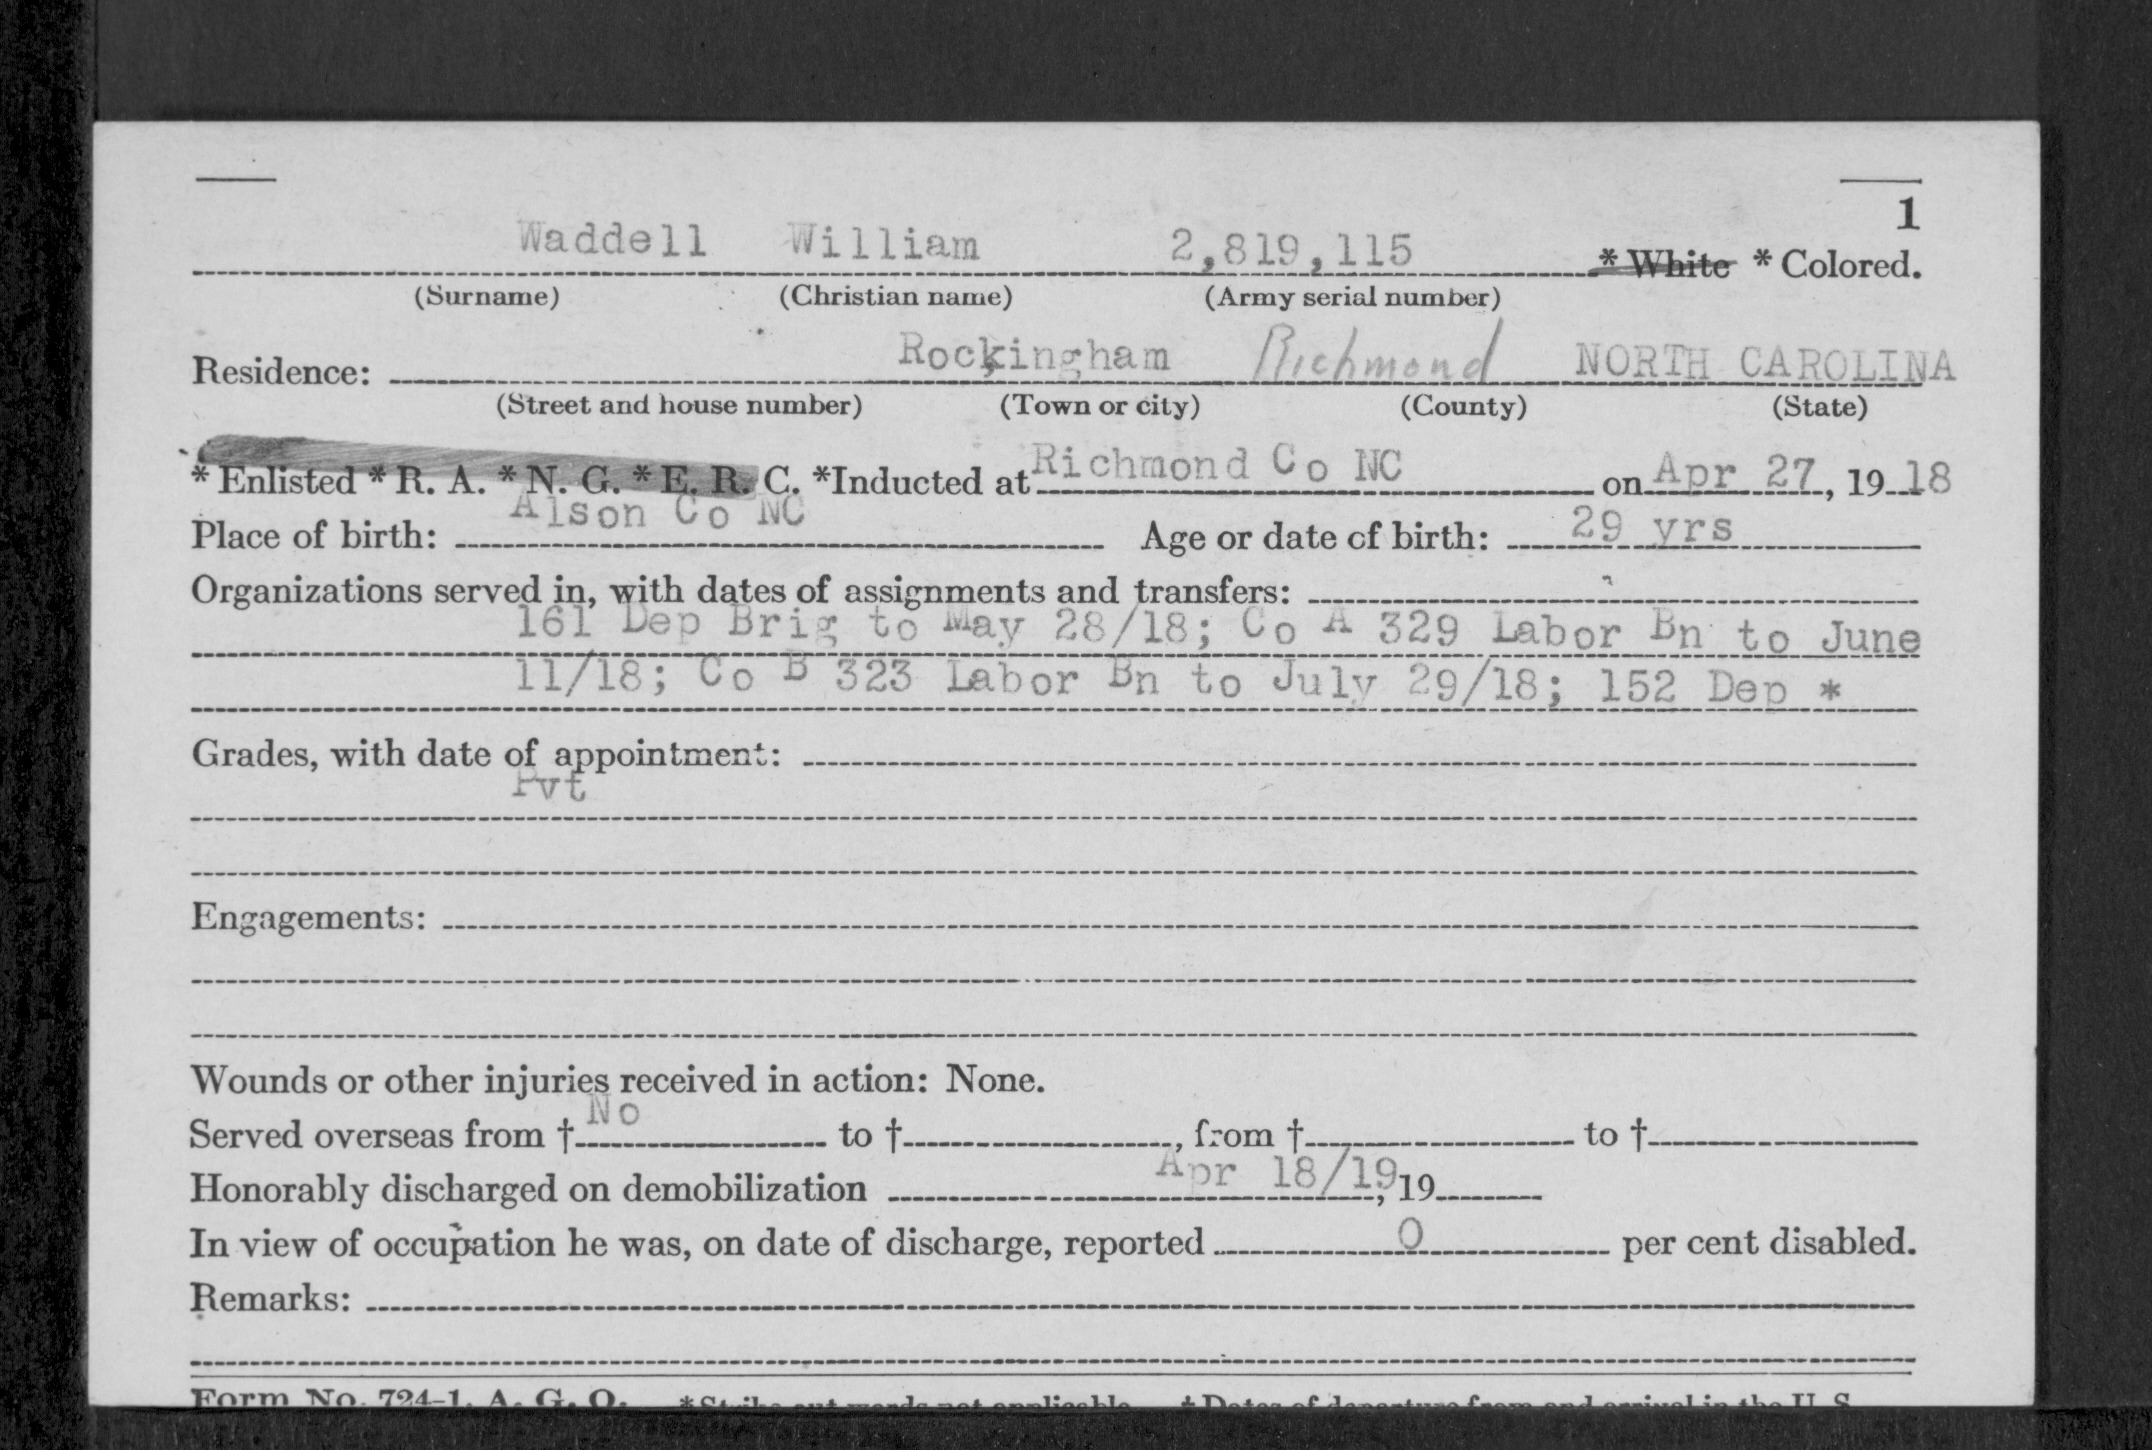 1
Waddell William 2,819,115 * White * Colored.
(Surname) (Christian name) (Army serial number)
Residence: Rockingham Richmond NORTH CAROLINA
(Street and house number) (Town or city) (County) (State)
* Enlisted * R. A. * N. G. * E. R. C. *Inducted at Richmond Co NC on Apr 27, 19 18
Place of birth: Alson Co NC Age or date of birth: 29 yrs
Organizations served in, with dates of assignments and transfers:
161 Dep Brig to May 28/18; Co A 329 Labor Bn to June
11/18; Co B 323 Labor Bn to July 29/18; 152 Dep *
Grades, with date of appointment:
Pvt
Engagements:
Wounds or other injuries received in action: None.
Served overseas from † No to †, from † to †
Honorably discharged on demobilization Apr 18/19, 19
In view of occupation he was, on date of discharge, reported 0 per cent disabled.
Remarks:
Form No. 724-1, A. G. O. *Strike out words not applicable. † Dates of departure from and arrival in the U. S.